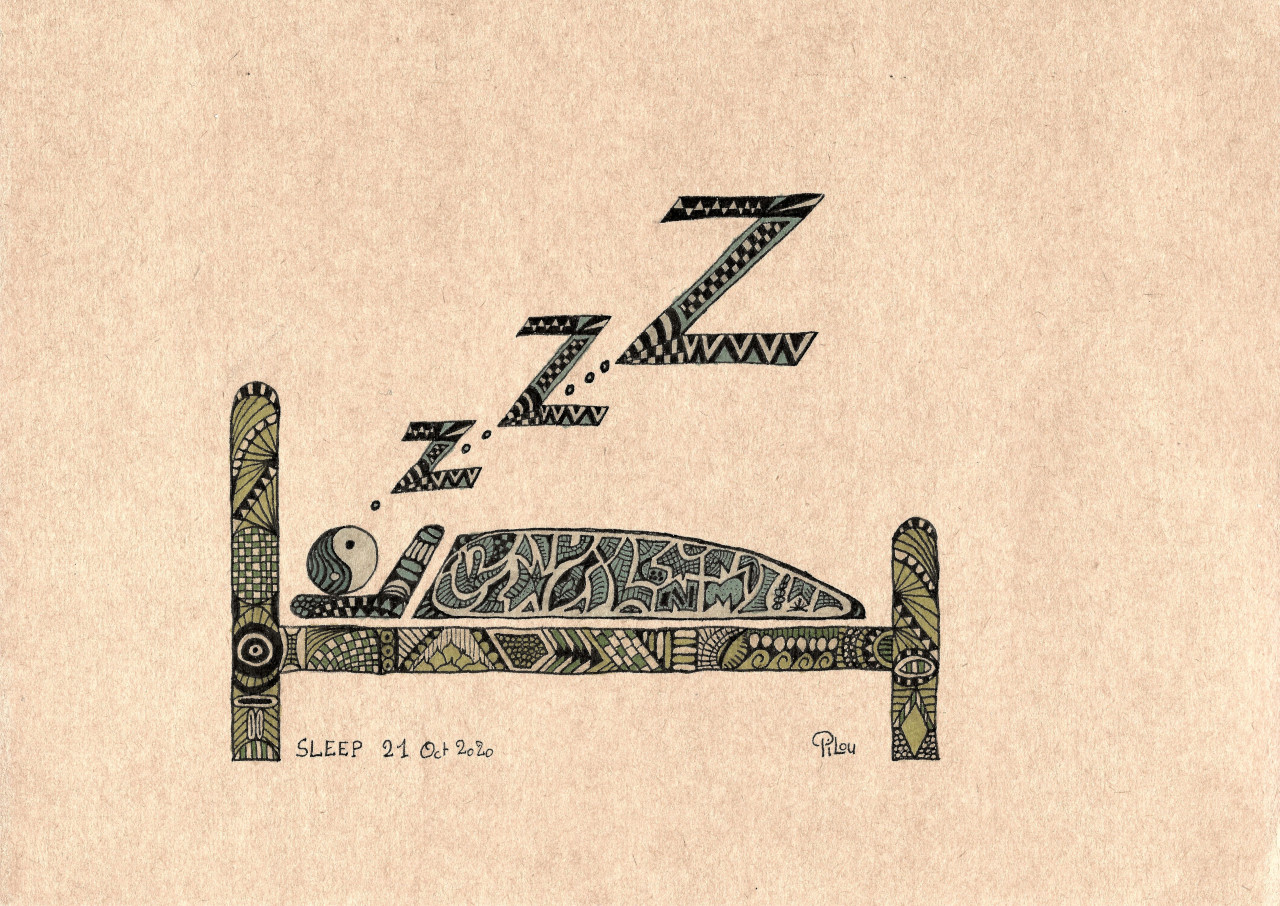 Z
Z
Z
SLEEP 21 Oct 2020
PiLou